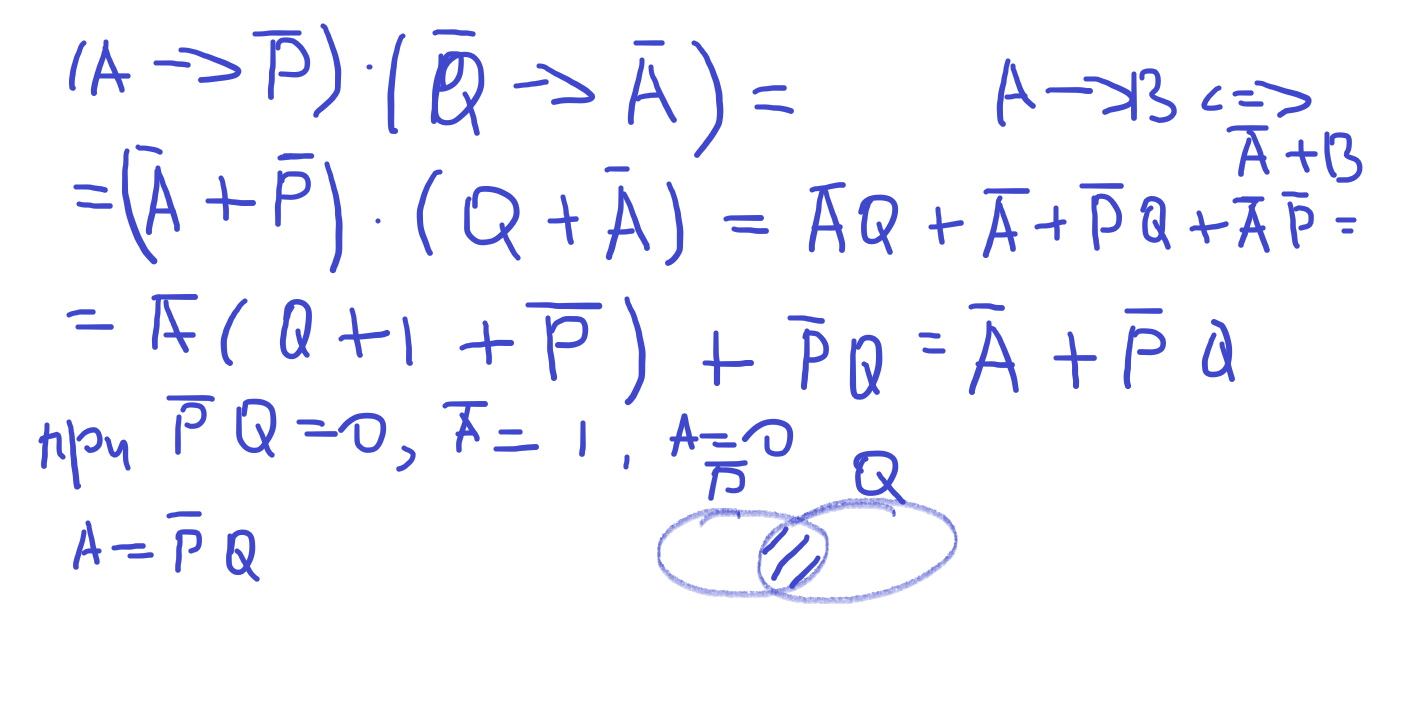 (A → P̅) · (Q̅ → A̅) =
A → B <=>
A̅ + B
= (A̅ + P̅) · (Q + A̅) = A̅Q + A̅ + P̅Q + A̅P̅ =
= A̅ (Q + 1 + P̅) + P̅Q = A̅ + P̅Q
при P̅Q = 0, A̅ = 1, A = 0
P̅ Q
A = P̅Q